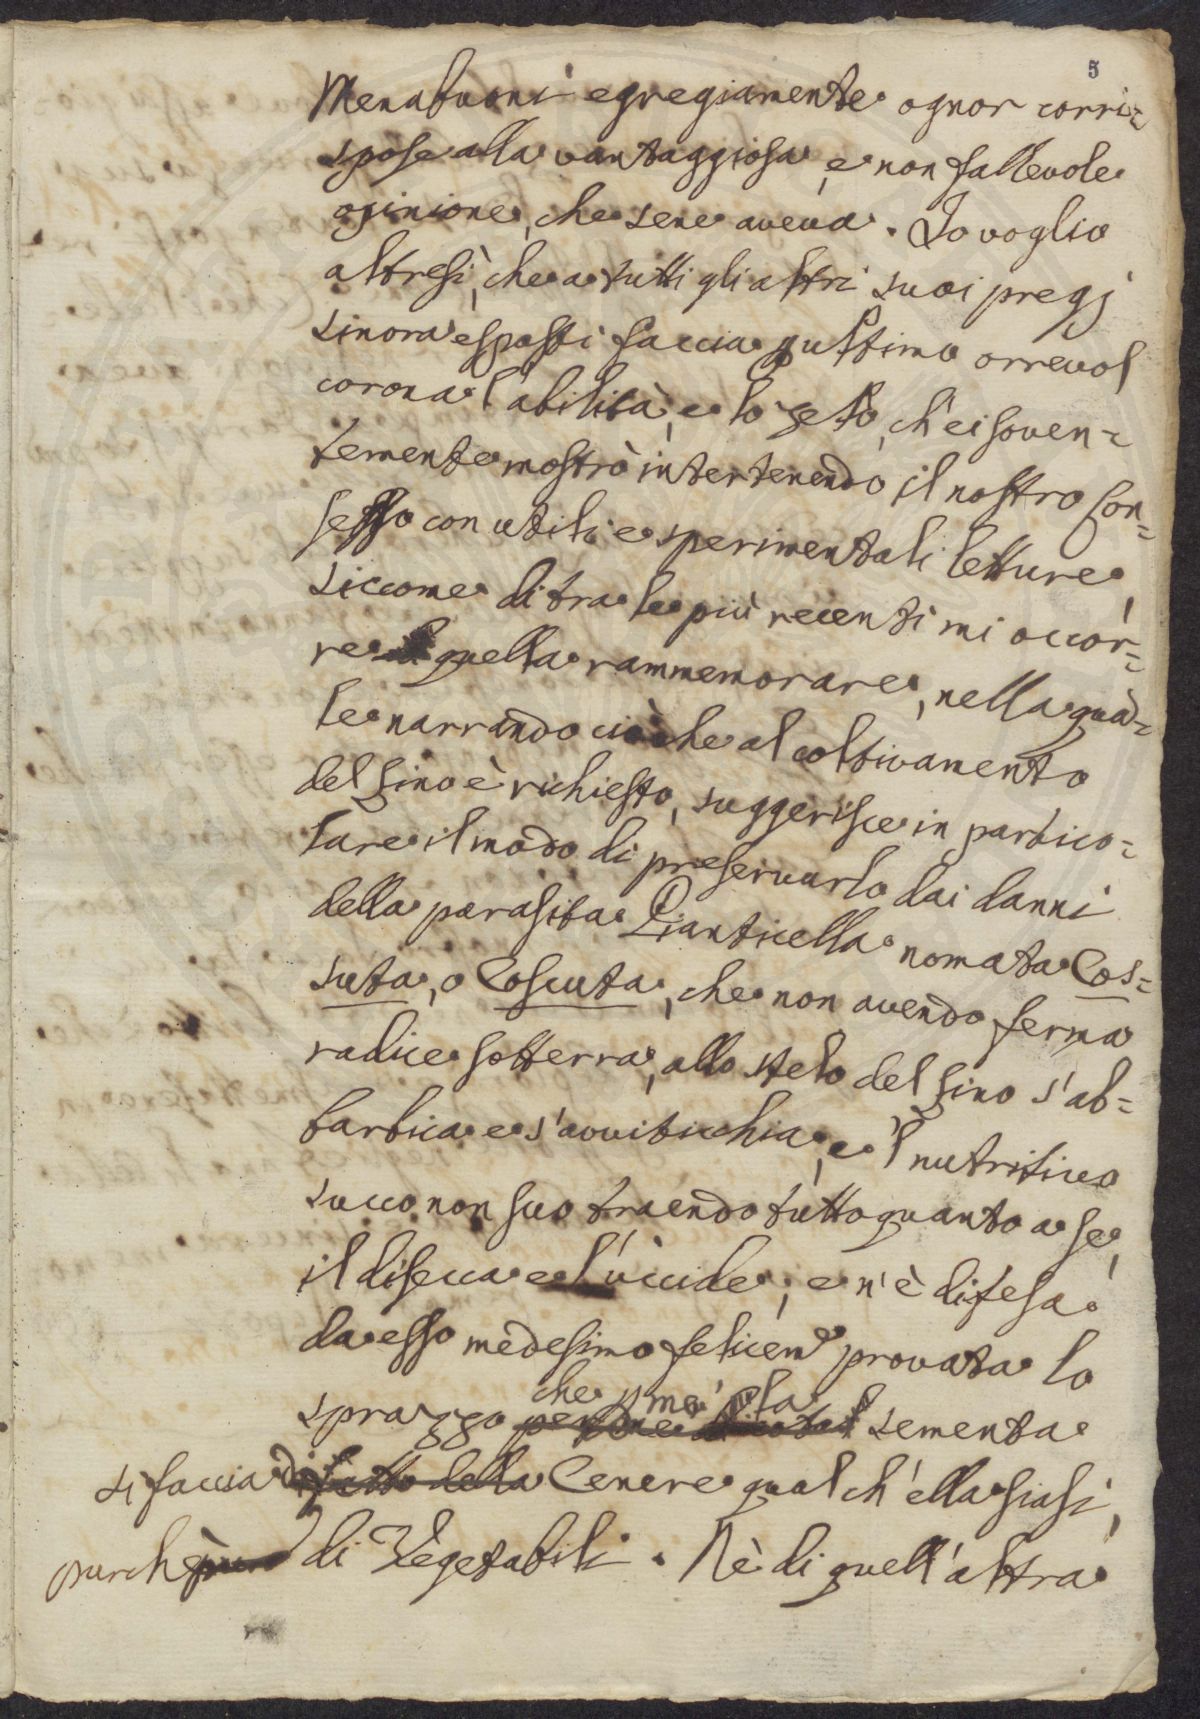 5
Menabuoni egregiamente ognor corri=
spose alla vantaggiosa, e non fallevole
opinione, che sene aveva. Io voglio
altresì, che a tutti gli altri suoi pregj
sinora esposti faccia ultimo orrevol
corona l'abilità, e lo zelo, ch'ei soven=
temente mostrò intertenendo il nostro Con=
sesso con utili e sperimentali letture,
siccome di tra le più recenti mi occor=
re quella rammemorare, nella qua=
le narrando ciò che al coltivamento
del Lino è richiesto, suggerisce in partico=
lare il modo di preservarlo dai danni
della parasita Pianticella nomata Cos=
suta, o Coscuta, che non avendo ferma
radice sotterra, allo stelo del Lino s'ab=
barbica e s'avviticchia, e 'l nutritivo
succo non suo traendo tutto quanto a se,
il disecca e l'uccide; e n'è difesa
da esso medesimo felicem.e provata lo
che la
sprazzo sementa
si faccia di fatto della Cenere qual ch'ella siasi,
purchè di Vegetabili. Nè di quell'altra